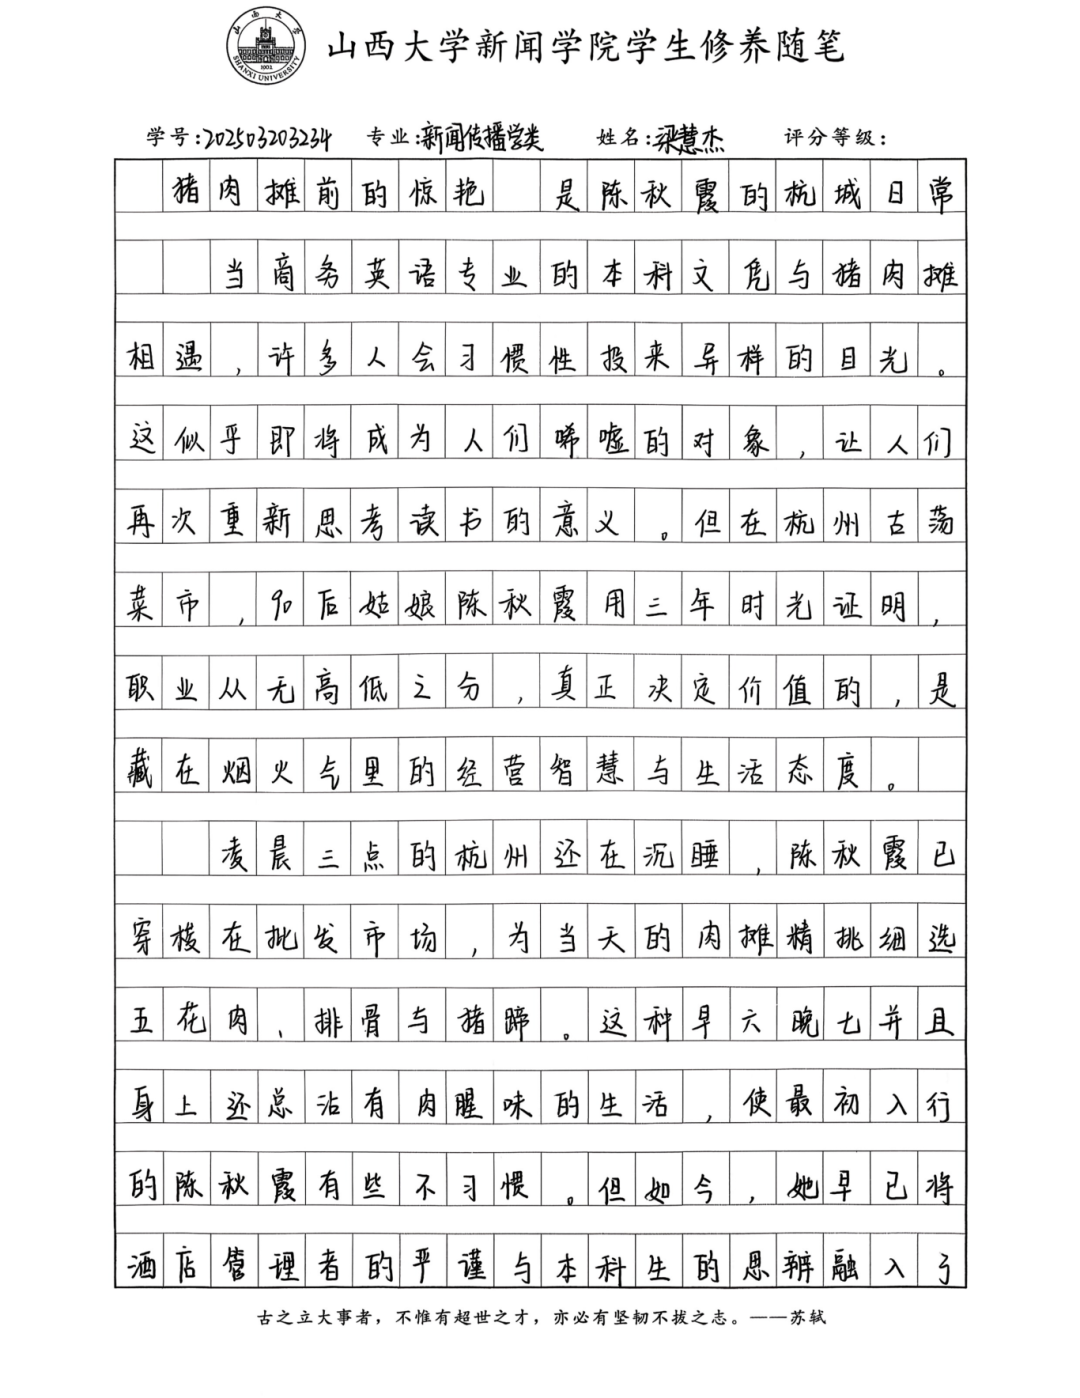 山西大学
SHANXI UNIVERSITY
1902
山西大学新闻学院学生修养随笔
学号:202503203234 专业:新闻传播学类 姓名:梁慧杰 评分等级:
猪肉摊前的惊艳 是陈秋霞的杭城日常
当商务英语专业的本科文凭与猪肉摊
相遇,许多人会习惯性投来异样的目光。
这似乎即将成为人们唏嘘的对象,让人们
再次重新思考读书的意义。但在杭州古荡
菜市,90后姑娘陈秋霞用三年时光证明,
职业从无高低之分,真正决定价值的,是
藏在烟火气里的经营智慧与生活态度。
凌晨三点的杭州还在沉睡,陈秋霞已
穿梭在批发市场,为当天的肉摊精挑细选
五花肉、排骨与猪蹄。这种早六晚七并且
身上还总沾有肉腥味的生活,使最初入行
的陈秋霞有些不习惯。但如今,她早已将
酒店管理者的严谨与本科生的思辨融入了
古之立大事者，不惟有超世之才，亦必有坚韧不拔之志。——苏轼